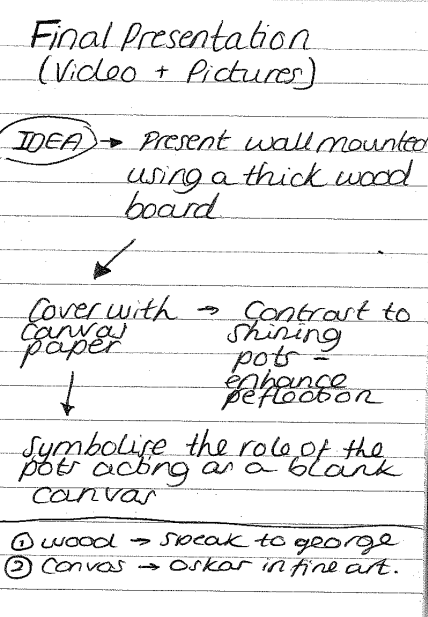 Final Presentation
(Video + Pictures)
IDEA → Present wall mounted
using a thick wood
board
Cover with → Contrast to
canvas shining
paper pots -
enhance
reflection
symbolise the role of the
pots acting as a blank
canvas
① wood → speak to george
② Canvas → oskar in fine art.